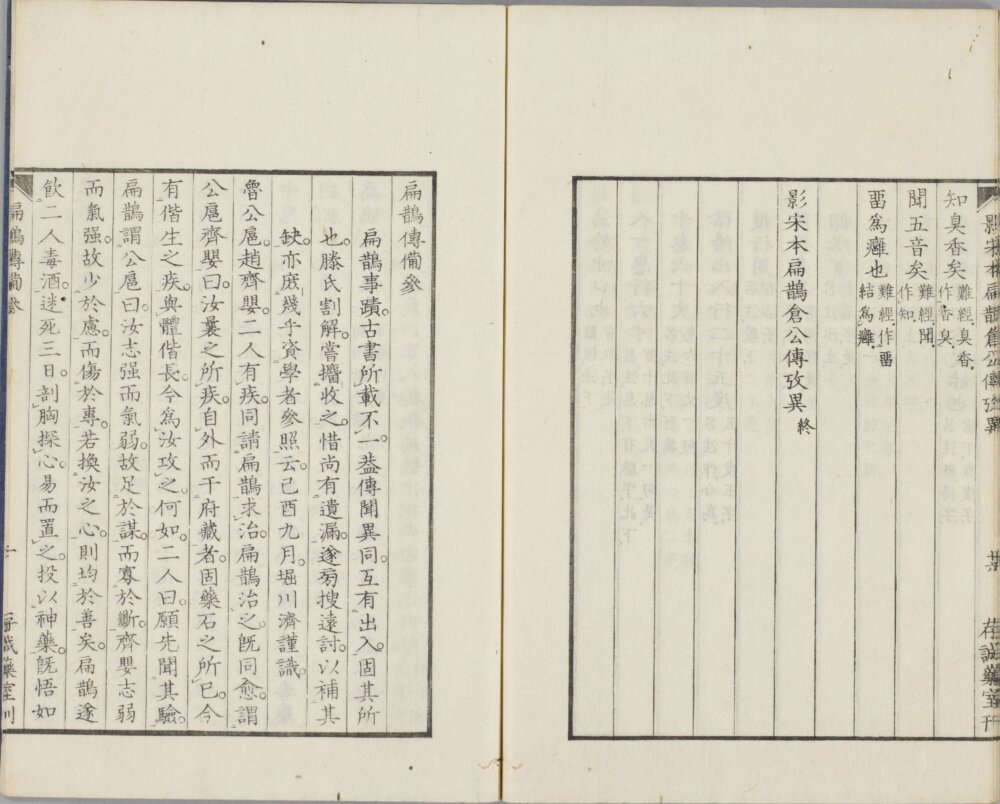 影宋本扁鵲倉公傳攷異
存誠藥室刊
知臭香矣難經臭香作香臭
聞五音矣難經聞作知
畱爲癰也難經作畱結爲癰
影宋本扁鵲倉公傳攷異終
扁鵲傳備參
扁鵲事蹟古書所載不一葢傳聞異同互有出入固其所
也滕氏割解嘗攟收之惜尚有遺漏遂旁搜遠討以補其
缺亦庻幾乎資學者參照云己酉九月堀川濟謹識
魯公扈趙齊嬰二人有疾同請扁鵲求治扁鵲治之旣同愈謂
公扈齊嬰曰汝曩之所疾自外而干府藏者固藥石之所已今
有偕生之疾與體偕長今爲汝攻之何如二人曰願先聞其驗
扁鵲謂公扈曰汝志强而氣弱故足於謀而寡於斷齊嬰志弱
而氣强故少於慮而傷於專若換汝之心則均於善矣扁鵲遂
飮二人毒酒迷死三日剖胸探心易而置之投以神藥旣悟如
扁鵲傳備參
存誠藥室刊